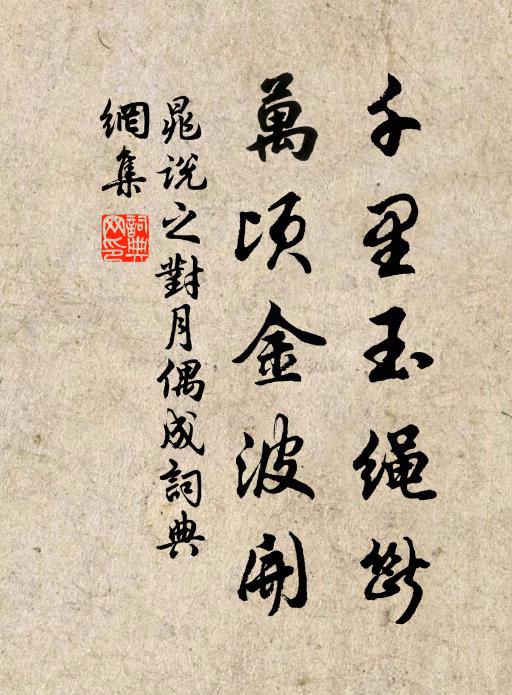 千里玉绳断
萬頃金波開
晁说之對月偶成詞典
網集
詞典
网印